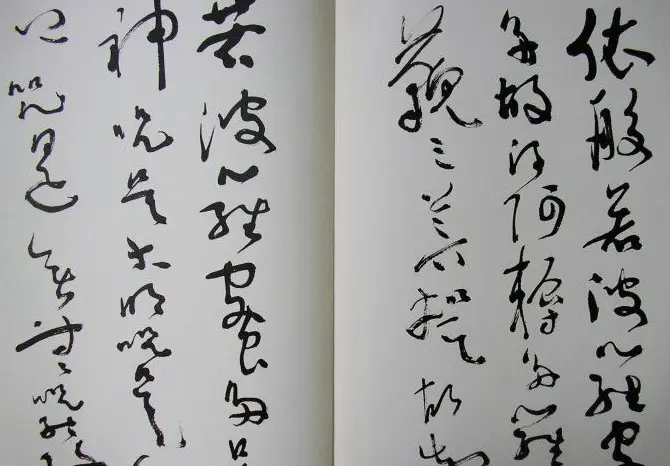 依般若波羅蜜
多故得阿耨多羅
藐三菩提故知
若波羅蜜多是
神咒是大明咒是
上咒是無等等咒能